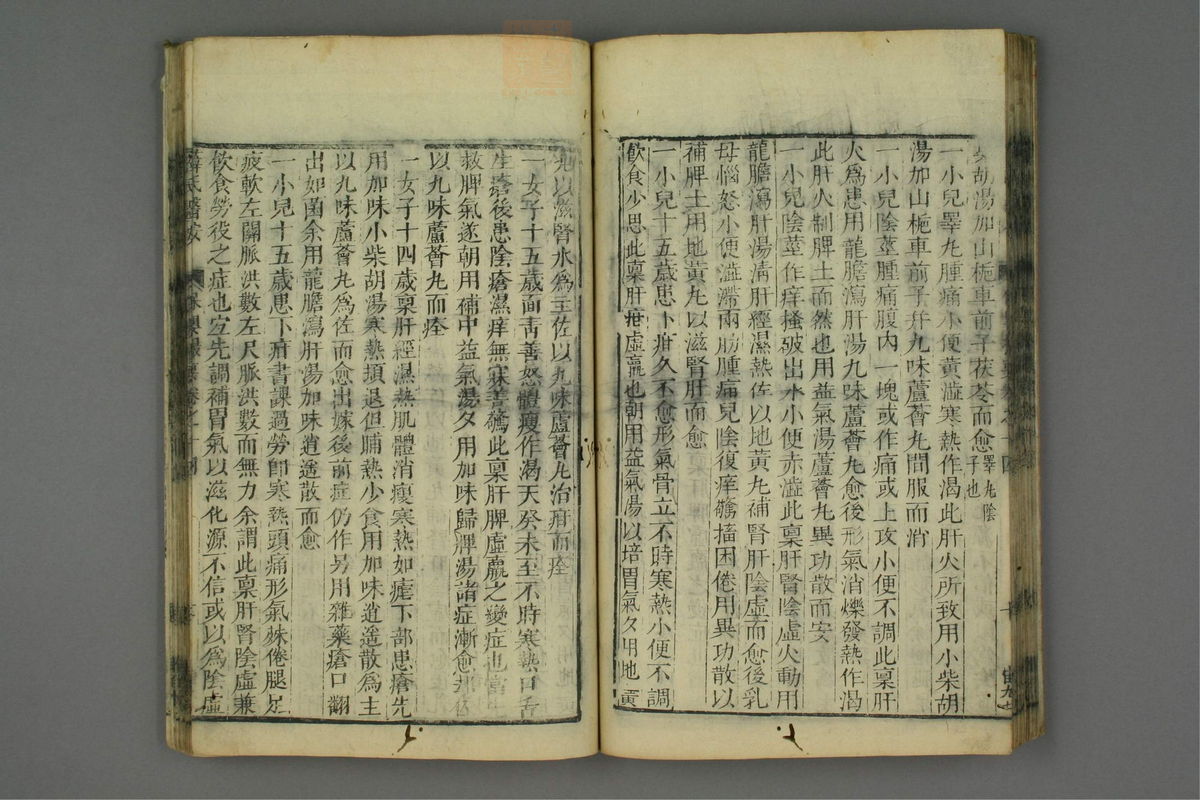 胡湯加山梔車前子茯苓而愈睪丸陰子也
一小兒睪丸腫痛小便黃澁寒熱作渴此肝火所致用小柴胡
湯加山梔車前子并九味蘆薈丸間服而消
一小兒陰莖腫痛腹內一塊或作痛或上攻小便不調此稟肝
火爲患用龍膽瀉肝湯九味蘆薈丸愈後形氣消爍發熱作渴
此肝火制脾土而然也用益氣湯蘆薈丸異功散而安
一小兒陰莖作痒搔破出水小便赤澁此稟肝腎陰虛火動用
龍膽瀉肝湯淸肝經濕熱佐以地黃丸補腎肝陰虛而愈後乳
母惱怒小便澁滯兩肋腫痛兒陰復痒驚搐困倦用異功散以
補脾土用地黃丸以滋腎肝而愈
一小兒十五歲患下疳久不愈形氣骨立不時寒熱小便不調
飲食少思此稟肝疳虛羸也朝用益氣湯以培胃氣夕用地黃
丸以滋腎水爲主佐以九味蘆薈丸治疳而痊
一女子十五歲面靑善怒體瘦作渴天癸未至不時寒熱口舌
生瘡後患陰瘡濕痒無寐善驚此稟肝脾虛羸之變症也當
救脾氣遂朝用補中益氣湯夕用加味歸脾湯諸症漸愈却佐
以九味蘆薈丸而痊
一女子十四歲稟肝經濕熱肌體消瘦寒熱如瘧下部患瘡先
用加味小柴胡湯寒熱頓退但晡熱少食用加味逍遙散爲主
以九味蘆薈丸爲佐而愈出嫁後前症仍作另用雜藥瘡口翻
出如菌余用龍膽瀉肝湯加味逍遙散而愈
一小兒十五歲患下疳書課過勞卽寒熱頭痛形氣殊倦腿足
疲軟左關脈洪數左尺脈洪數而無力余謂此稟肝腎陰虛兼
飲食勞役之症也宜先調補胃氣以滋化源不信或以爲陰虛